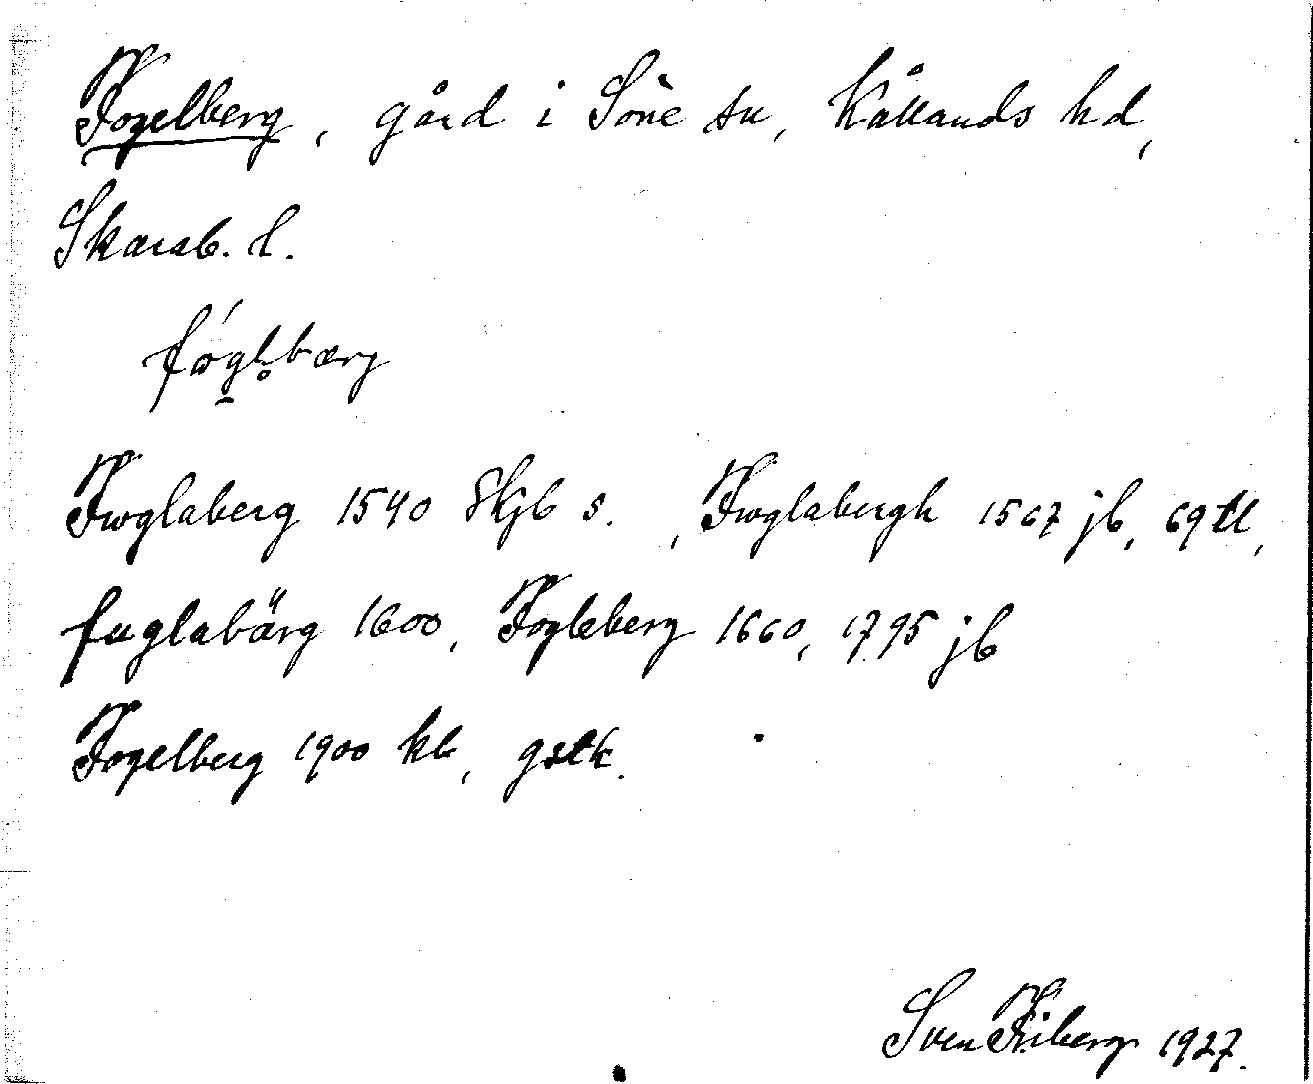 Fogelberg, gård i Söne sn, Kållands hd,
Skarab. l.
Fwglaberg 1540 Skjb s. , Fwglabergh 1567 jb, 69 tl,
fuglabärg 1600, Fogleberg 1660, 1795 jb
Fogelberg 1900 kb, gstk.
Sven Friberg 1927.